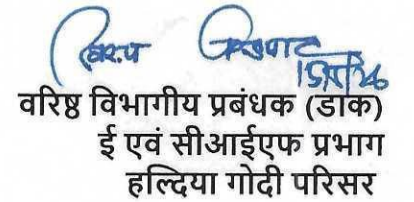 वरिष्ठ विभागीय प्रबंधक (डॉक)
ई एवं सीआईएफ प्रभाग
हल्दिया गोदी परिसर